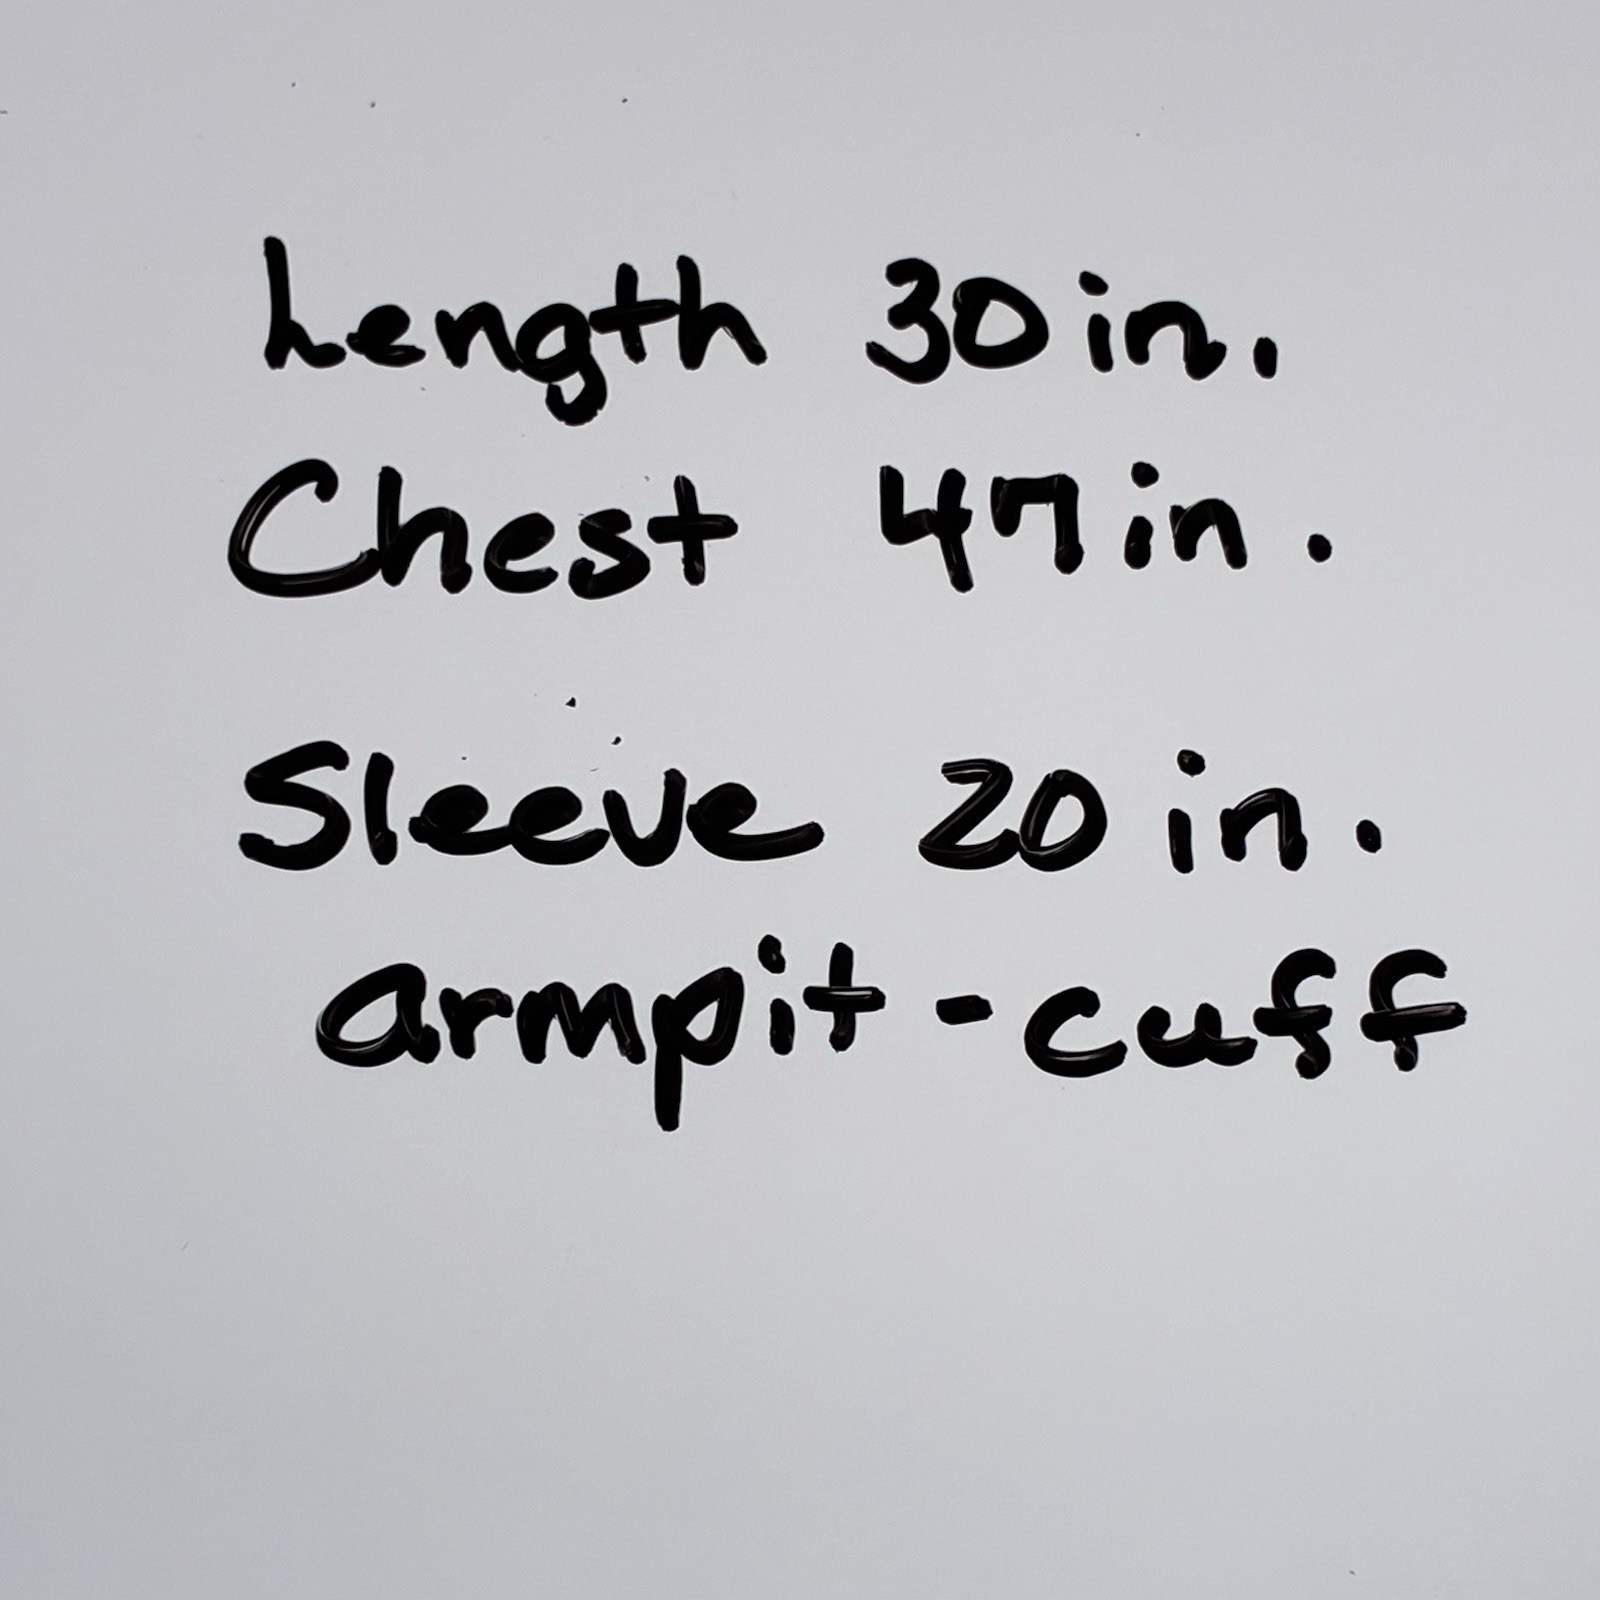 Length 30 in.
Chest 47 in.
Sleeve 20 in.
armpit - cuff